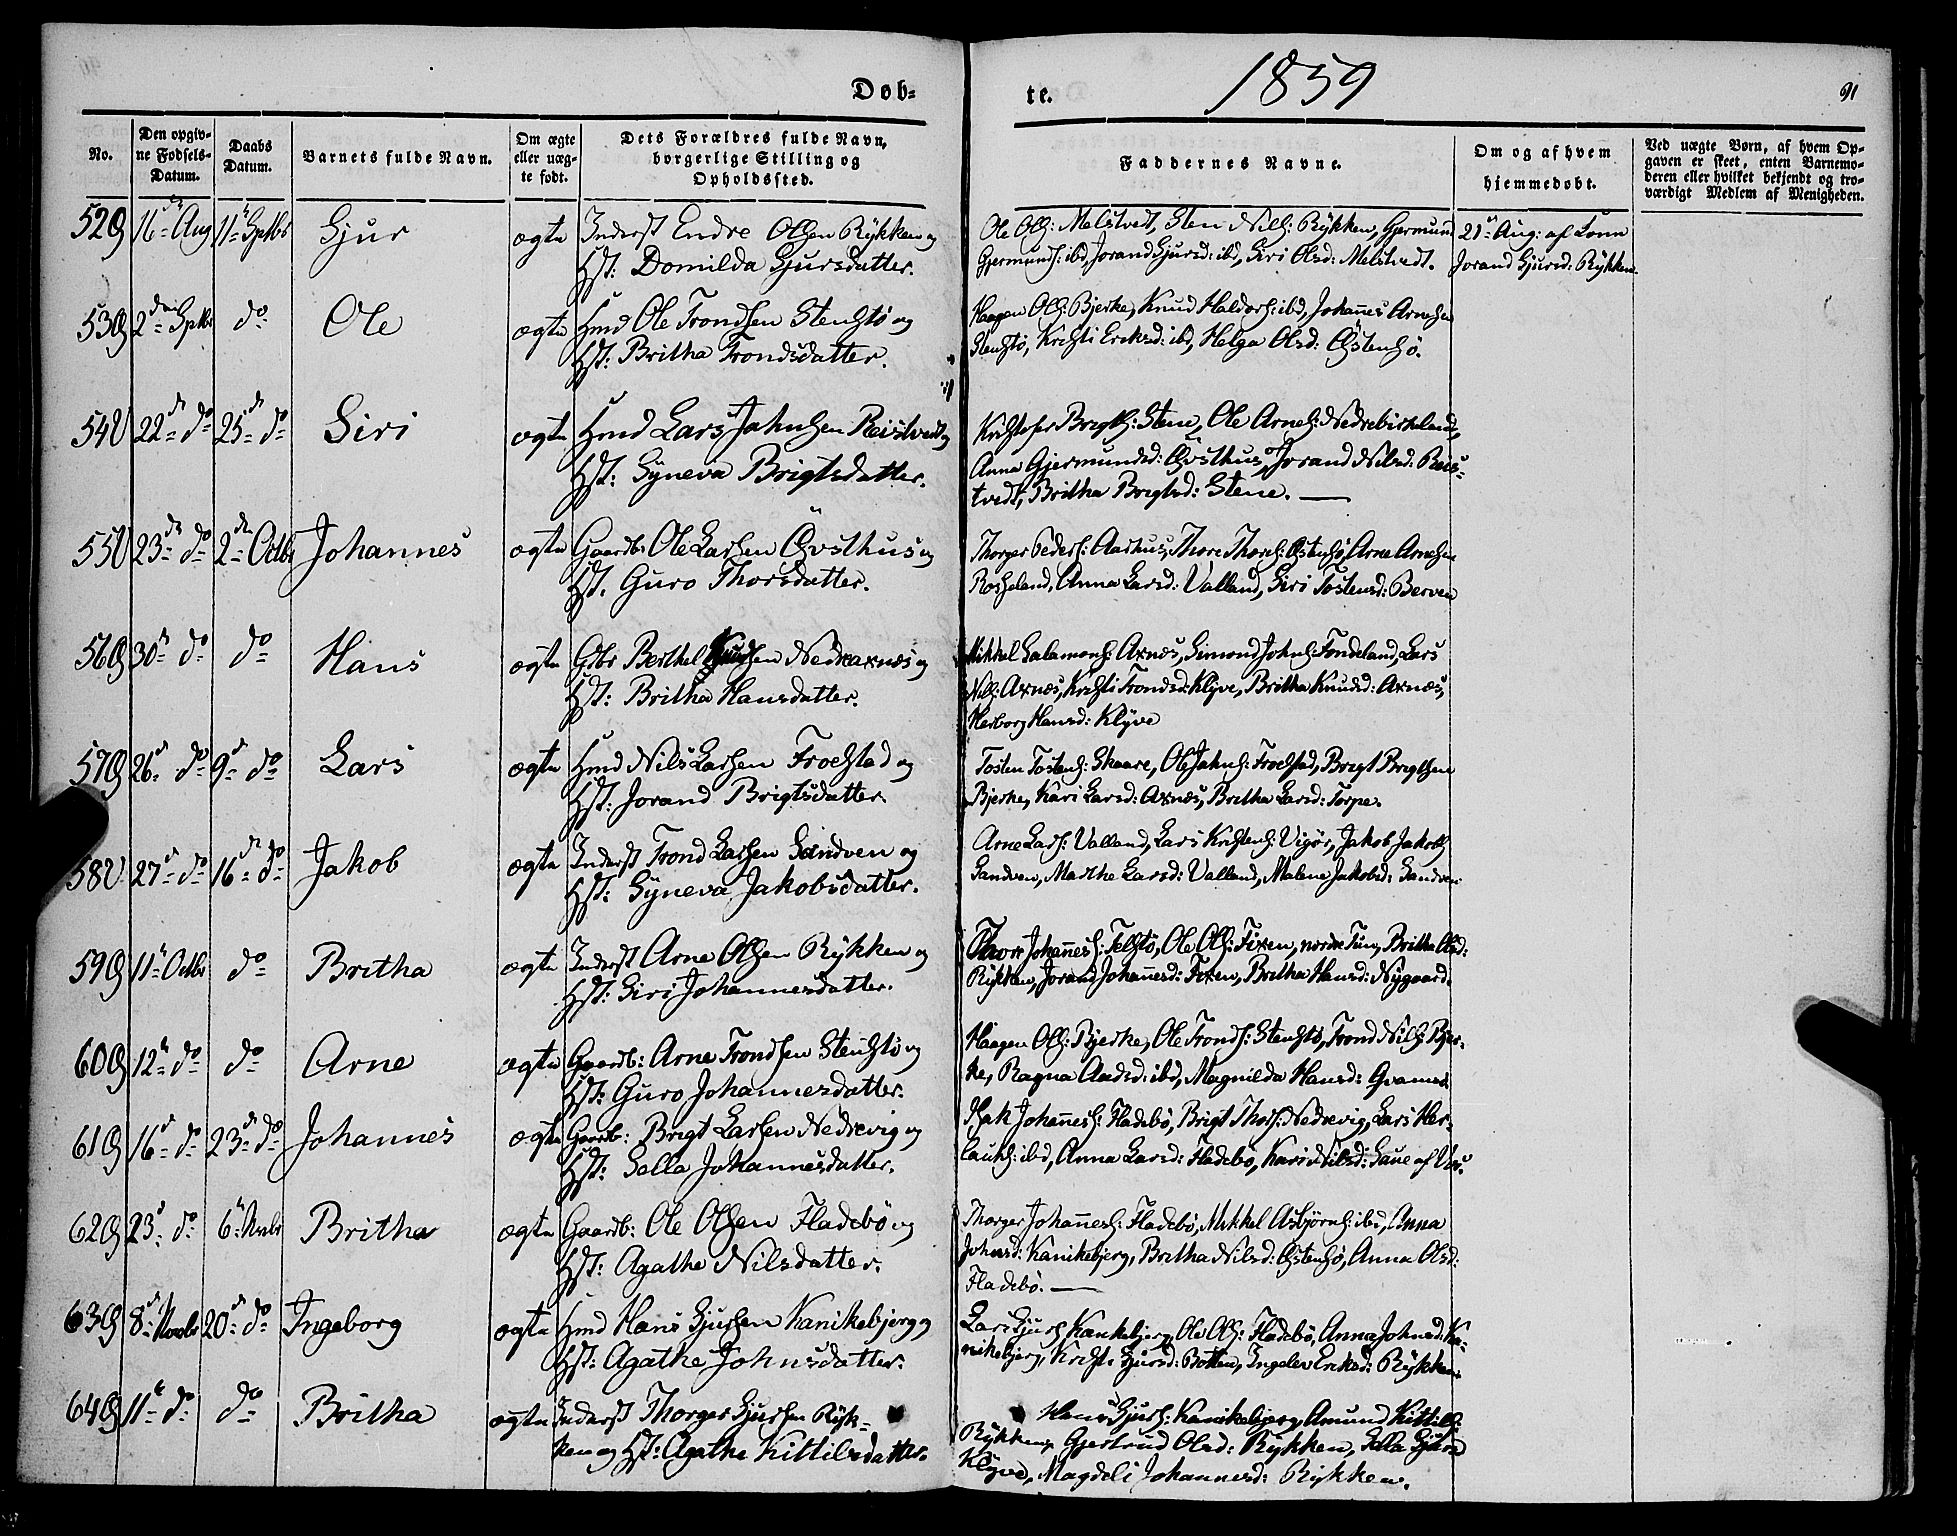 Døb=
te.
1859
91
No.
Den opgiv=
ne Fødsels=
Datum.
Daabs
Datum.
Barnets fulde Navn.
Om ægte
eller uæg=
te født.
Dets Forældres fulde Navn,
borgerlige Stilling og
Opholdssted.
Faddernes Navne.
Om og af hvem
hjemmedøbt.
Ved uægte Børn, af hvem Op=
gaven er skeet, enten Barnemo=
deren eller hvilket bekjendt og tro=
værdigt Medlem af Menigheden.
52 16 Aug 11 Sptbr Sjur ægte Inderst Endre Olsen Rykken og
Hst: Domilda Sjursdatter.
Ole Ols: Melstvedt, Sten Nils: Rykken, Gjermund
Gjermunds: ibd, Jorand Sjursd: ibd, Siri Olsd: Melstvedt.
21 Aug: af
Jorand Sjursd: Rykken
53 2 Sptbr do Ole ægte Hmd Ole Trondsen Stenstø og
Hst: Britha Trondsdatter.
Haagen Ols: Bjerke, Knud Haldors: ibd, Johannes Arnesen
Stenstø, Kristi Eriksd: ibd, Helga Olsd: Østensø.
54 22 do 25 do Siri ægte Hmd Lars Johnsen Reistvedt og
Hst: Syneva Brigtsdatter.
Kristofer Brigts: Stene, Ole Arnes: Nedrebirkeland,
Anna Gjermundsd: Øvsthus, Jorand Nilsd: Reis=
tvedt, Britha Brigtsd: Stene.
55 23 do 2 Octbr Johannes ægte Gaardb: Ole Larsen Øvsthus og
Hst. Guro Thorsdatter.
Thorger Peders: Aarhus, Thore Thores: Østensø, Arne Arnesen
Rosseland, Anna Larsd: Valland, Siri Tostensd: Berven
56 30 do do Hans ægte Gdbr Berthel Knudsen Nedreaxnæs og
Hst: Britha Hansdatter.
Mikkel Salamons: Axnæs, Simond Johns: Tondeland, Lars
Nils: Axnæs, Kristi Trondsd: Klyve, Britha Knudsd: Axnæs,
Herborg Hansd: Klyve
57 26 do 9 do Lars ægte Hmd Nils Larsen Froestad og
Hst: Jorand Brigtsdatter.
Tosten Tostens: Skaare, Ole Johns: Froestad, Brigt Brigtsen
Bjerke, Kari Larsd: Axnæs, Britha Larsd: Torpe.
58 27 do 16 do Jakob ægte Inderst Trond Larsen Sandven og
Hst: Syneva Jakobsdatter.
Arne Lars: Valland, Lars Kristens: Vigør, Jakob Jakobs
Sandven, Marthe Larsd: Valland, Malene Jakobsd: Sandven
59 11 Octbr do Britha ægte Inderst Arne Olsen Rykken og
Hst: Siri Johannesdatter.
Thore Johannes: Telstø, Ole Ols: Fixen, nordre Tun, Britha Olsd:
Rykken, Jorand Johannesd: Fixen, Britha Hansd: Nygaard.
60 12 do do Arne ægte Gaardb: Arne Trondsen Stenstø og
Hst: Guro Johannesdatter.
Haagen Ols: Bjerke, Ole Tronds: Stenstø, Trond Nils: Bjer=
ke, Ragna Aadsd: ibd, Magnilda Hansd: Gvamen
61 16 do 23 do Johannes ægte Gaardb: Brigt Larsen Nedrevig og
Hst: Sella Johannesdatter.
Isak Johannes: Fladebø, Brigt Thors: Nedrevig, Lars Her=
laugs: ibd, Anna Larsd: Fladebø, Kari Nilsd: Saue af Vos.
62 23 do 6 Novbr Britha ægte Gaardb: Ole Olsen Fladebø og
Hst: Agathe Nilsdatter.
Thorger Johannes: Fladebø, Mikkel Asbjørns: ibd, Anna
Johnsd: Kanikebjerg, Britha Nilsd: Østensø, Anna Olsd:
Fladebø.
63 8 Novbr 20 do Ingeborg ægte Hmd Hans Sjursen Kanikebjerg og
Hst: Agathe Johnsdatter.
Lars Sjurs: Kanikebjerg, Ole Ols: Fladebø, Anna Johnsd: Ka=
nikebjerg, Kristi Sjursd: Botten, Ingelev Eriksd: Rykken.
64 11 do do Britha ægte Inderst Thorger Sjursen Ryk=
ken og Hst: Agathe Kittilsdatter.
Hans Sjurs: Kanikebjerg, Amund Kittils:
Rykken, Gjertrud Olsd: Rykken, Sella Sjursd
Klyve, Magdeli Johannesd: Rykken.